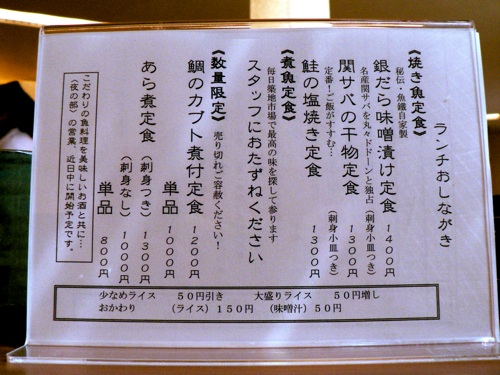 ランチおしながき
《焼き魚定食》
秘伝・魚鐵自家製
銀だら味噌漬け定食(刺身小皿つき) 1400円
名産関サバを丸々ドドーンと独占
関サバの干物定食(刺身小皿つき) 1300円
定番!ご飯がすすむ…
鮭の塩焼き定食 1300円
《煮魚定食》
毎日築地市場で最高の味を探して参ります
スタッフにおたずねください
《数量限定》 売り切れご容赦ください!
鯛のカブト煮付定食 1200円
単品 1000円
あら煮定食(刺身つき) 1300円
(刺身なし) 1000円
単品 800円
こだわりの魚料理を美味しいお酒と共に…
(夜の部)の営業、近日中に開始予定です。
少なめライス 50円引き 大盛りライス 50円増し
おかわり (ライス)150円 (味噌汁)50円